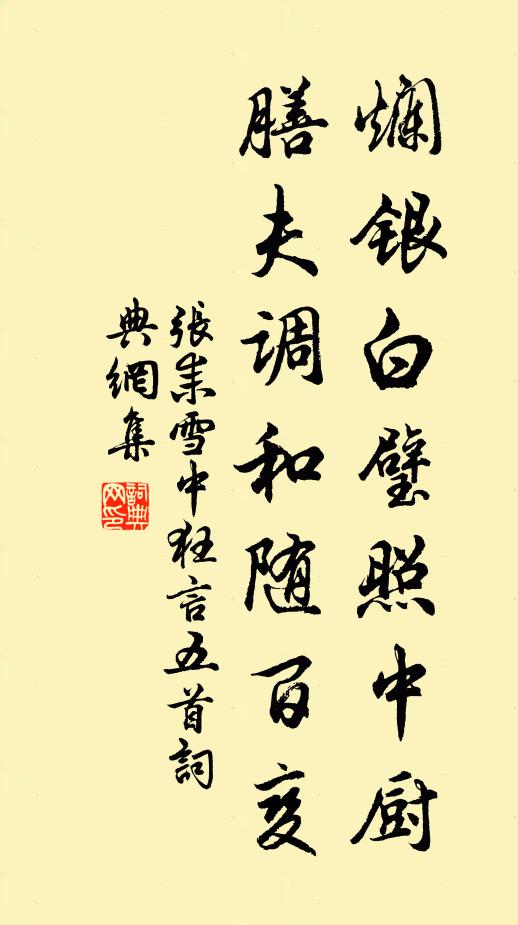 爛银白璧照中厨
膳夫调和随百变
張耒雪中狂言五首詞
典網集
詞典
网印